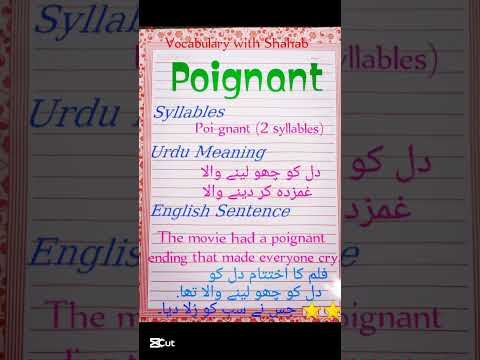 Vocabulary with Shahab
Poignant
Syllables
Poi-gnant (2 syllables)
Urdu Meaning
دل کو چھو لینے والا
غمزدہ کر دینے والا
English Sentence
The movie had a poignant
ending that made everyone cry.
فلم کا اختتام دل کو
دل کو چھو لینے والا تھا.
جس نے سب کو رُلا دیا.
CapCut